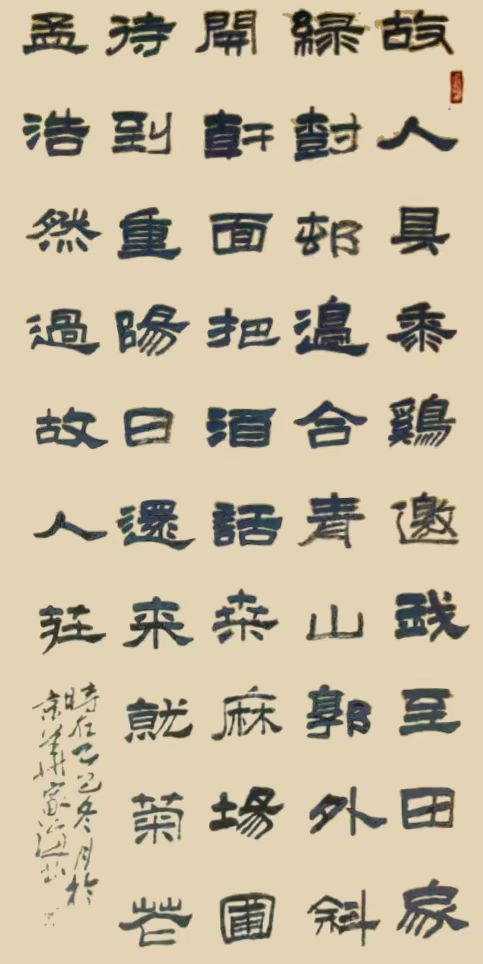 故人具黍鷄邀我至田家
緑尌邨邊合青山郭外斜
開軒面把酒話桒麻場圃
待到重陽日還来就菊花
孟浩然過故人莊
時在乙巳冬月於
京華家海